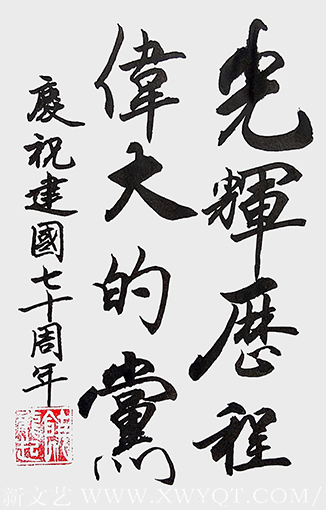 光輝歷程
偉大的黨
慶祝建國七十周年
新文艺 WWW.XWYQT.COM/